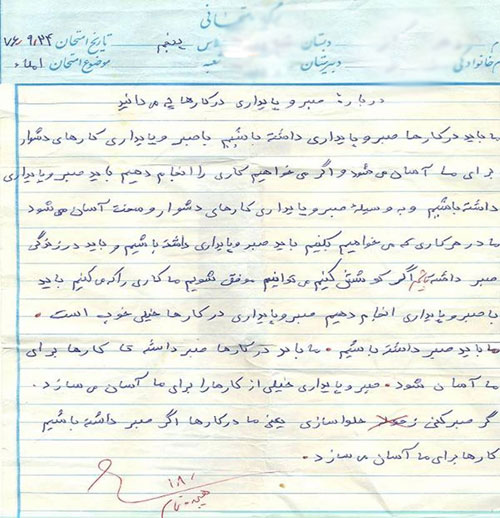 امتحانی
دبستان کلاس پنجم تاریخ امتحان ۷۶/۹/۲۴
خانوادگی دبیرستان شعبه موضوع امتحان املاء
دربارهٔ صبر و پایداری در کارها چه می دانید
ما باید در کارها صبر و پایداری داشته باشیم با صبر و پایداری کارهای دشوار
برای ما آسان می شود و اگر می خواهیم کاری را انجام دهیم باید صبر و پایداری
داشته باشیم و به وسیلهٔ صبر و پایداری کارهای دشوار و سخت آسان می شود
ما در هر کاری که می خواهیم بکنیم باید صبر و پایداری داشته باشیم و باید در زندگی
صبر داشته باشیم اگر کوشش کنیم می توانیم موفق شویم ما کاری را که می کنیم باید
با صبر و پایداری انجام دهیم صبر و پایداری در کارها خیلی خوب است .
ما باید صبر داشته باشیم . ما باید در کارها صبر داشته تا کارها برای
ما آسان شود . صبر و پایداری خیلی از کارها را برای ما آسان می سازد .
گر صبر کنی ز حلوا سازی یعنی ما در کارها اگر صبر داشته باشیم
کارها برای ما آسان می سازد .
۱۸/